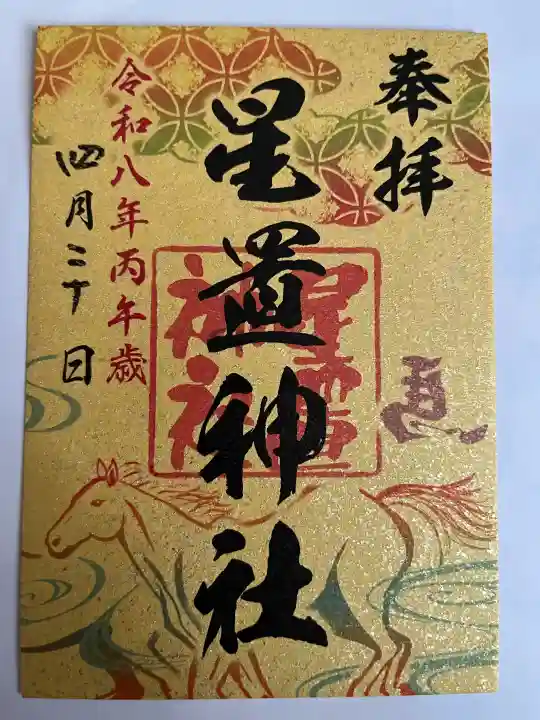 奉拝
星置神社
星置神社
令和八年丙午歳
四月二十日